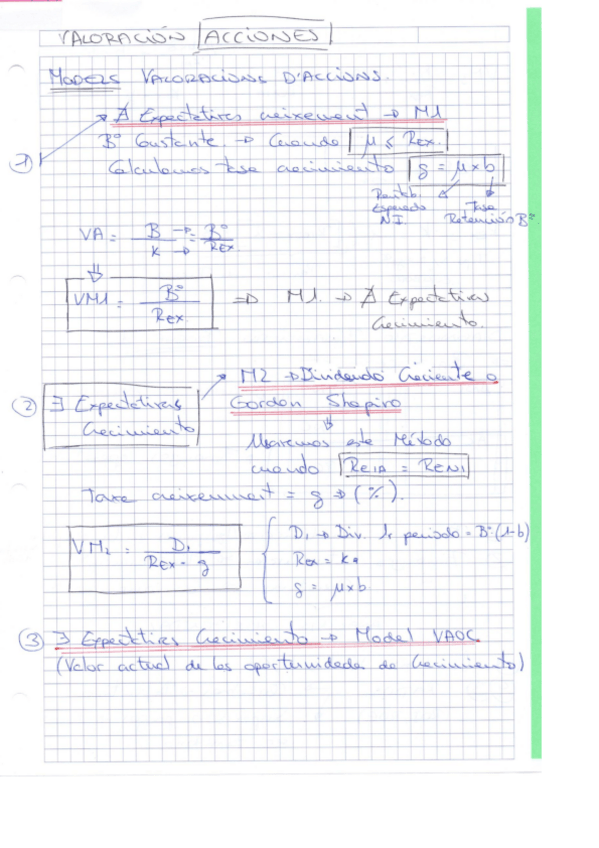 VALORACIÓN ACCIONES
MODELS VALORACIONS D'ACCIONS.
1) ∄ Expectatives creixement → M1
Bº Constante → Cuando μ ≤ Rex.
Calculamos tasa crecimiento g = μ×b
Rentab. esperada NI.
Tasa Retención Bº.
VA = B/K → = Bº/Rex
VM1 = Bº/Rex ⇒ M1. → ∄ Expectativas
Crecimiento.
2) ∃ Expectativas Crecimiento
M2 → Dividendo Creciente o
Gordon Shapiro
Usaremos este Método
cuando REIA = RENI
Taxa creixement = g → (%).
VM2 = D1/(Rex - g)
D1 → Div. 1r periodo = Bº(1-b)
Rex = Ke
g = μ×b
3) ∃ Expectativas Crecimiento → Model VAOC
(Valor actual de las oportunidades de Crecimiento)